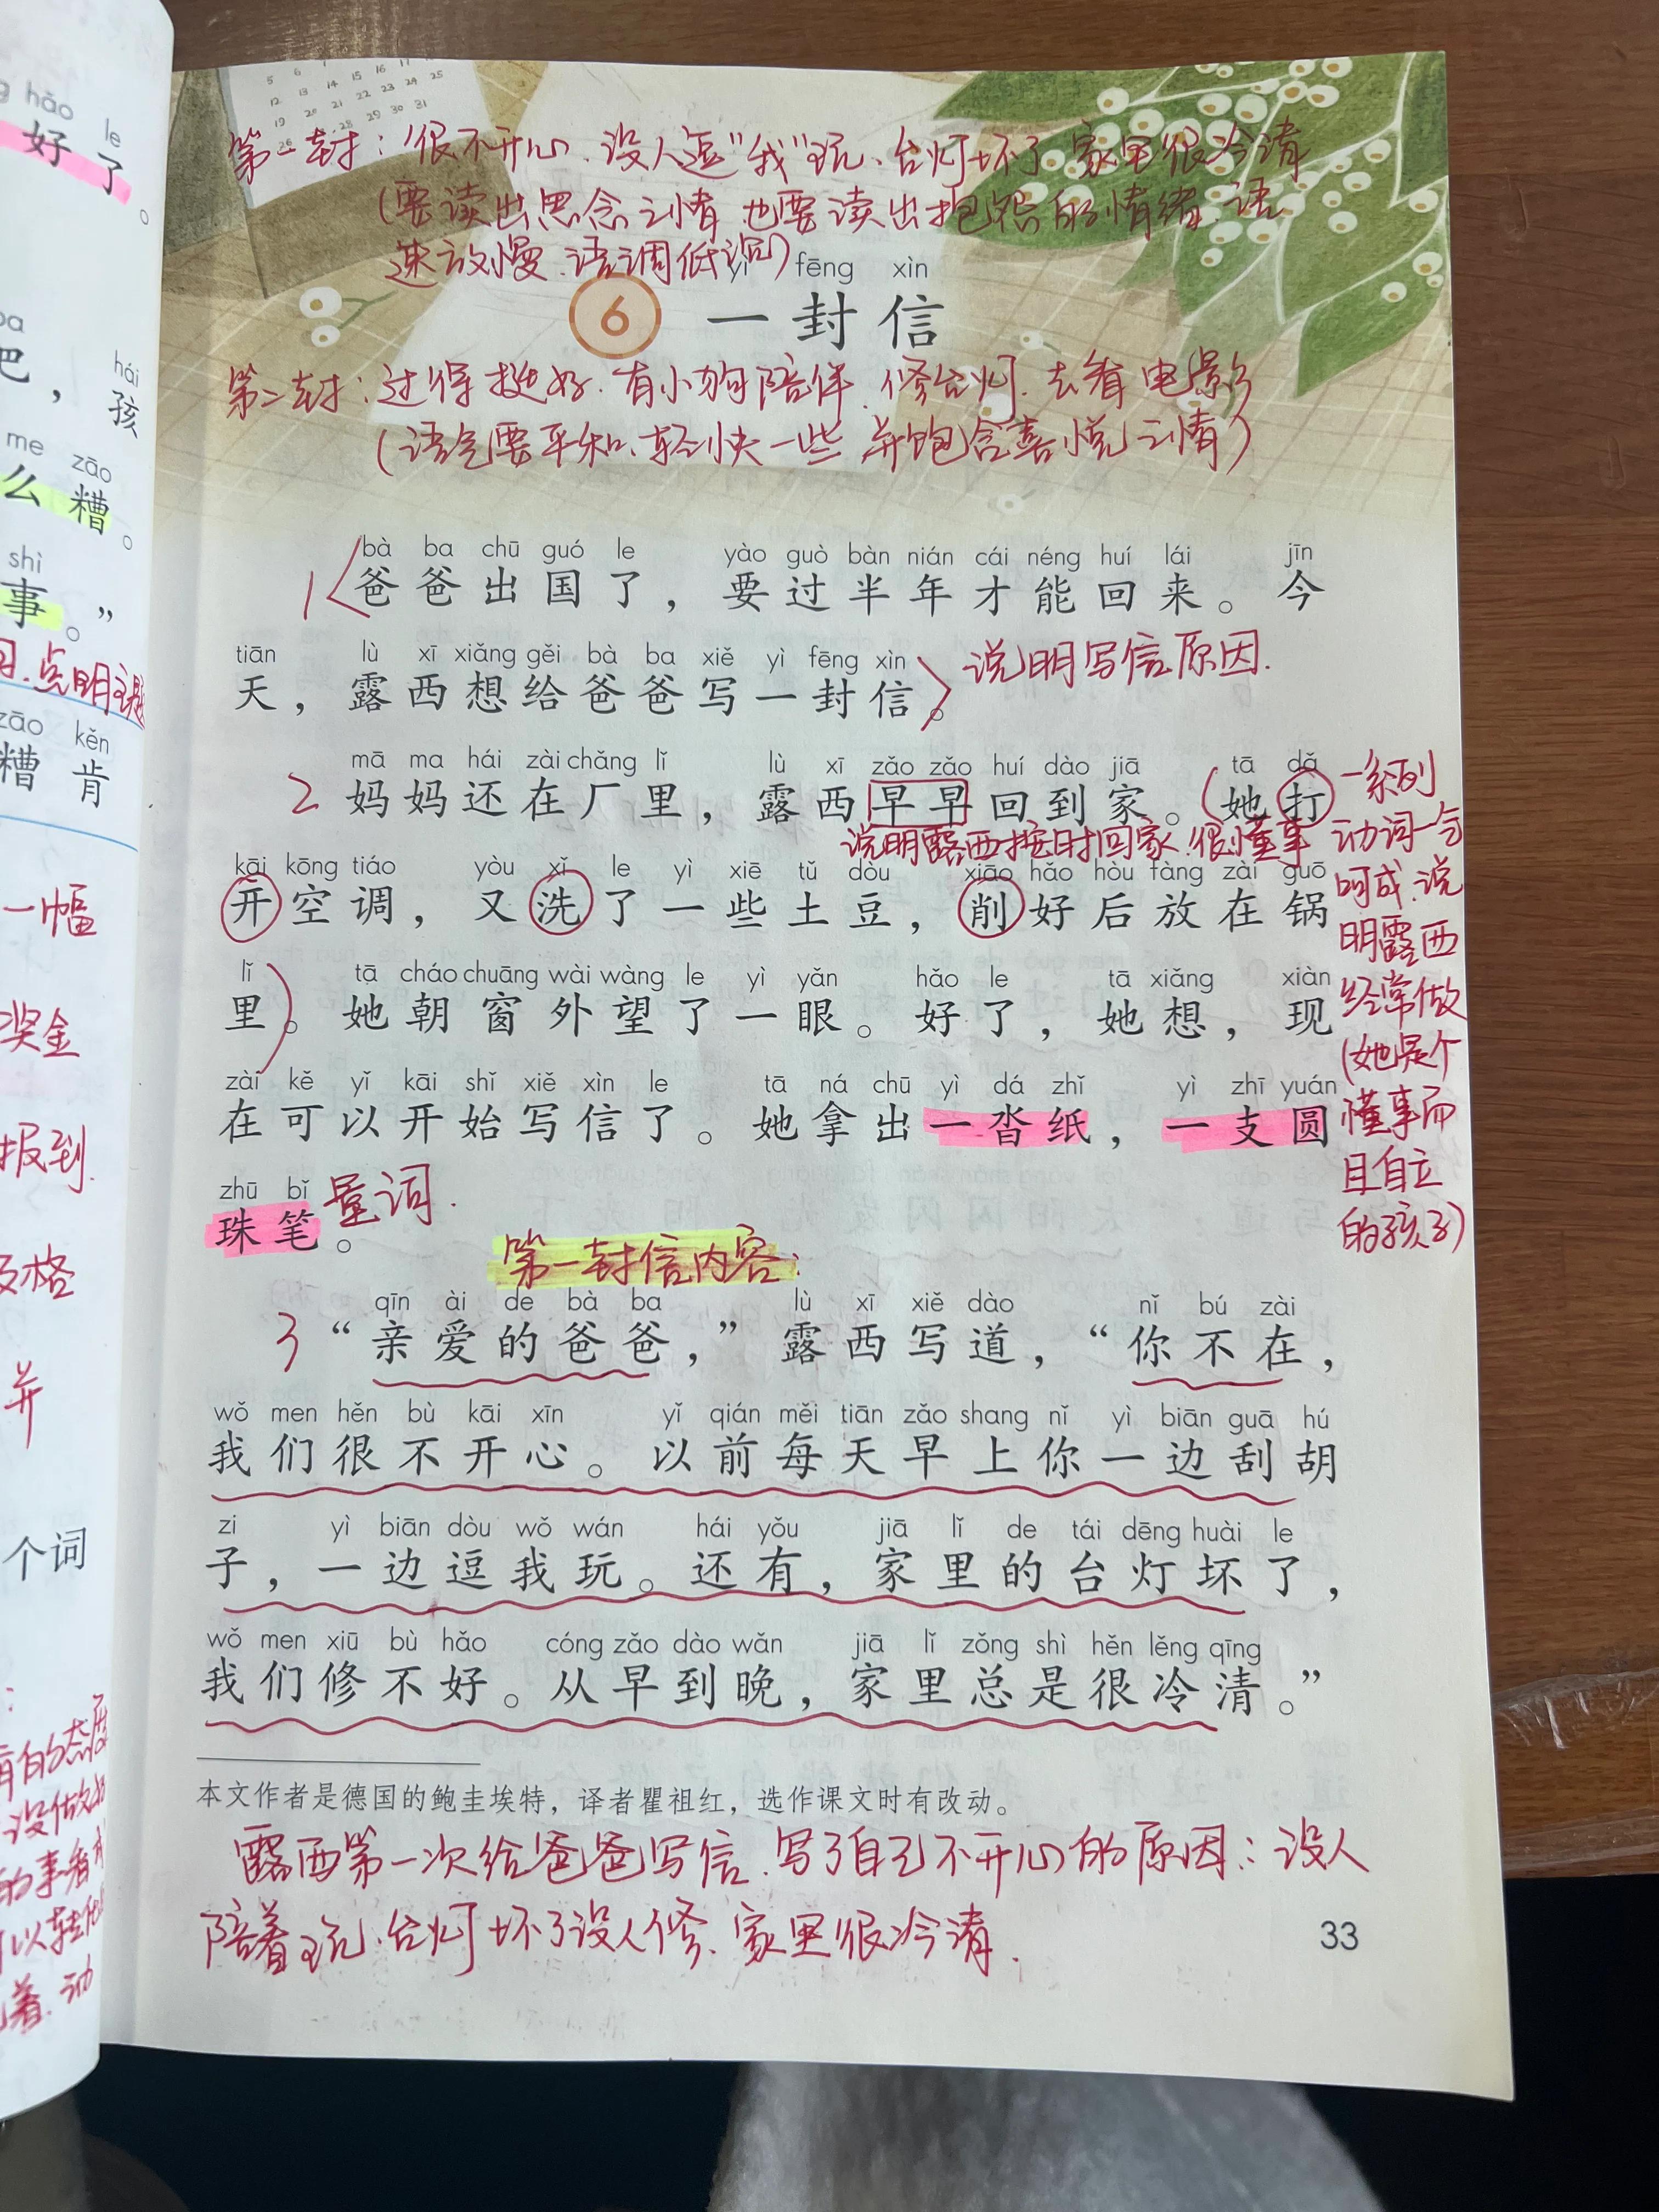 hǎo le
好了。
hái
吧，孩
me zāo
么糟。
shì
事。”
点明主题
zāo kěn
糟 肯
一幅
奖金
报到.
及格
并
个词
5 6 7
12 13 14 15 16 17
19 20 21 22 23 24 25
26 28 29 30 31
第一封：很不开心、没人逗“我”玩、台灯坏了 家里很冷清
(要读出思念之情 也要读出抱怨的情绪、语
速放慢、语调低沉)
yì fēng xìn
6 一封信
第二封：过得挺好、有小狗陪伴、修台灯、去看电影
(语气要平和、轻快一些 并饱含喜悦之情)
bà ba chū guó le yào guò bàn nián cái néng huí lái jīn
1 爸爸出国了，要过半年才能回来。今
tiān lù xī xiǎng gěi bà ba xiě yì fēng xìn
天，露西想给爸爸写一封信。 说明写信原因.
mā ma hái zài chǎng lǐ lù xī zǎo zǎo huí dào jiā tā dǎ
2 妈妈还在厂里，露西早早回到家。她打
说明露西按时回家.很懂事
kāi kōng tiáo yòu xǐ le yì xiē tǔ dòu xiāo hǎo hòu fàng zài guō
开空调，又洗了一些土豆，削好后放在锅
lǐ tā cháo chuāng wài wàng le yì yǎn hǎo le tā xiǎng xiàn
里。她朝窗外望了一眼。好了，她想，现
zài kě yǐ kāi shǐ xiě xìn le tā ná chū yì dá zhǐ yì zhī yuán
在可以开始写信了。她拿出一沓纸，一支圆
zhū bǐ
珠笔。 量词.
一系列
动词一气
呵成.说
明露西
经常做
(她是个
懂事而
且自立
的孩子)
第一封信内容：
qīn ài de bà ba lù xī xiě dào nǐ bú zài
3 “亲爱的爸爸，”露西写道，“你不在，
wǒ men hěn bù kāi xīn yǐ qián měi tiān zǎo shang nǐ yì biān guā hú
我们很不开心。以前每天早上你一边刮胡
zi yì biān dòu wǒ wán hái yǒu jiā lǐ de tái dēng huài le
子，一边逗我玩。还有，家里的台灯坏了，
wǒ men xiū bù hǎo cóng zǎo dào wǎn jiā lǐ zǒng shì hěn lěng qīng
我们修不好。从早到晚，家里总是很冷清。”
本文作者是德国的鲍圭埃特，译者瞿祖红，选作课文时有改动。
露西第一次给爸爸写信、写了自己不开心的原因：没人
陪着玩、台灯坏了没人修、家里很冷清.
33